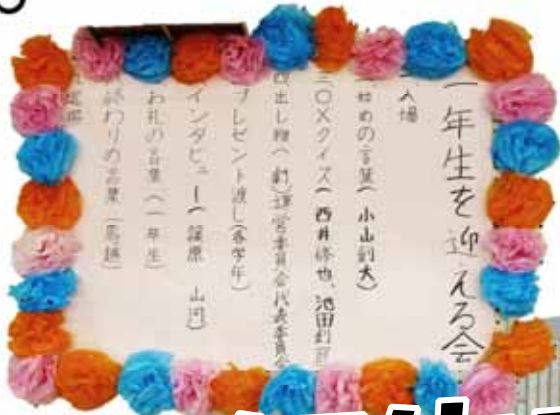 一年生を迎える会
入場
始めの言葉(小山創大)
三〇×クイズ(西井脩也、池田創
出し物(劇)運営委員会代表委員会
プレゼント渡し(各学年)
インタビュー(篠原 山河)
お礼の言葉(一年生)
終わりの言葉(馬越)